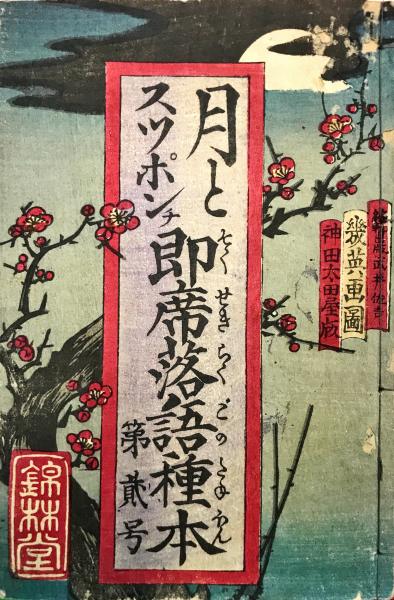 武井佐吉
幾英画圖
神田太田屋版
月と
スツポンチ
即席落語種本
そくせきらくごのたねほん
第貳号
錦林堂